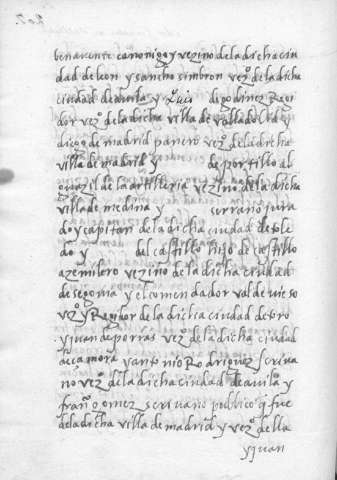 benavente canonigo y vezino de la dicha ciu
dad de leon y sancho simbron vezº de la dicha
ciudad de avila y de godinez Regi
dor vezº de la dicha villa de valladolid y
diego de madrid panero vezº de la dicha
villa de madrid y de portillo al
guazil de la artilleria vezino de la dicha
villa de medina y serrano jura
do y capitan de la dicha ciudad de tole
do y del castillo hijo de castillo
azemilero vezino de la dicha ciudad
de segovia y el comendador valdevieso
vezº y Regidor de la dicha ciudad de toro
y juan de porras vezº de la dicha ciudad
de camora Rodriguez scriva
no vezº de la dicha ciudad de avila y
franº gomez scrivano publico q fue
de la dicha villa de madrid y vezº della
y juan